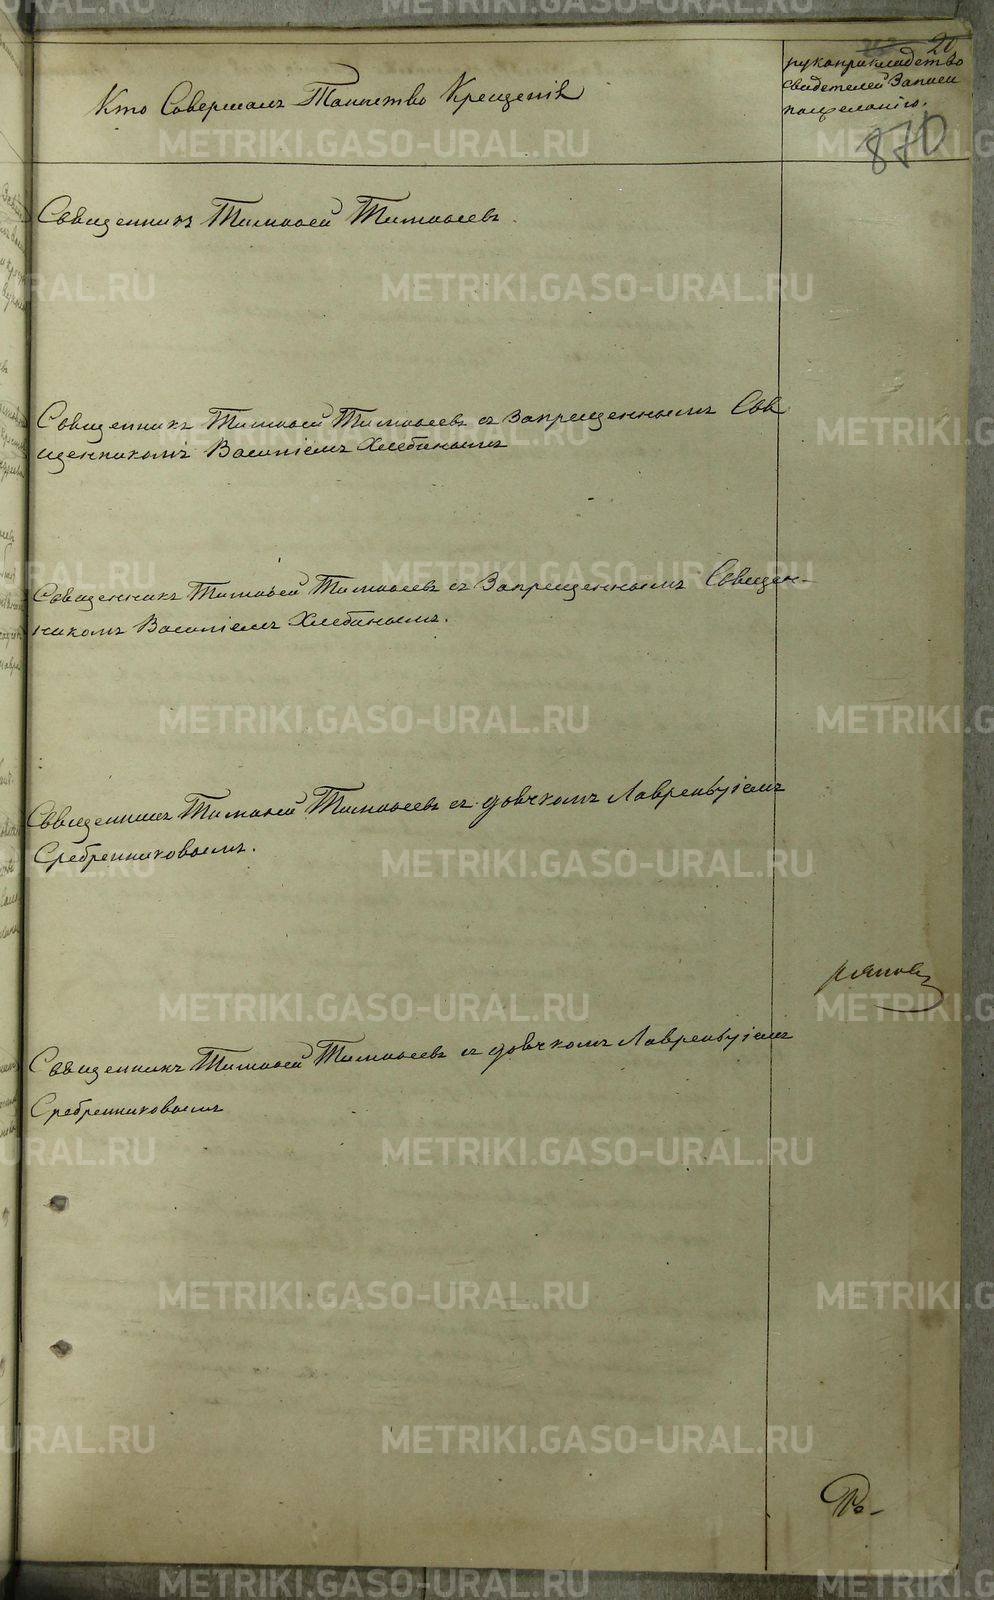 20
Кто Совершалъ Таинство Крещенія
рукоприкладство
свидетелей Записи
пожеланію.
870
Священникъ Тимофей Тимофеевъ.
Священникъ Тимофей Тимофеевъ съ Запрещеннымъ Свя
щенникомъ Василіемъ Хлебинымъ
Священникъ Тимофей Тимофеевъ съ Запрещеннымъ Священ-
никомъ Василіемъ Хлебинымъ.
Священникъ Тимофей Тимофеевъ съ дьячкомъ Лаврентіемъ
Сребренниковымъ.
Священникъ Тимофей Тимофеевъ съ дьячкомъ Лаврентіемъ
Сребренниковымъ
METRIKI.GASO-URAL.RU